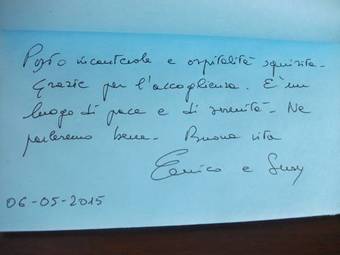 Posto incantevole e ospitalità squisita.
Grazie per l'accoglienza. E' un
luogo di pace e di serenità. Ne
parleremo bene. Buona vita
Enrico e Susy
06-05-2015